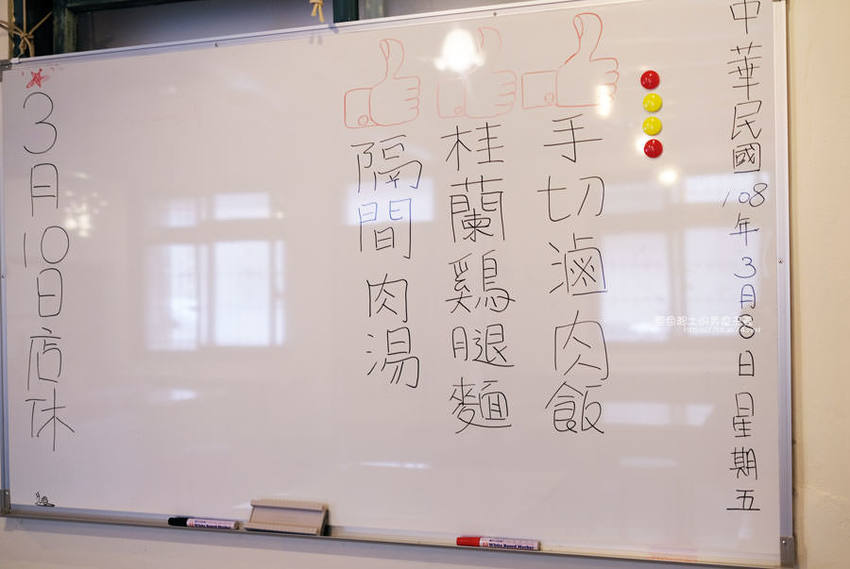 中華民國108年3月8日星期五
手切滷肉飯
桂蘭雞腿麵
隔間肉湯
3月10日店休
White Board Marker